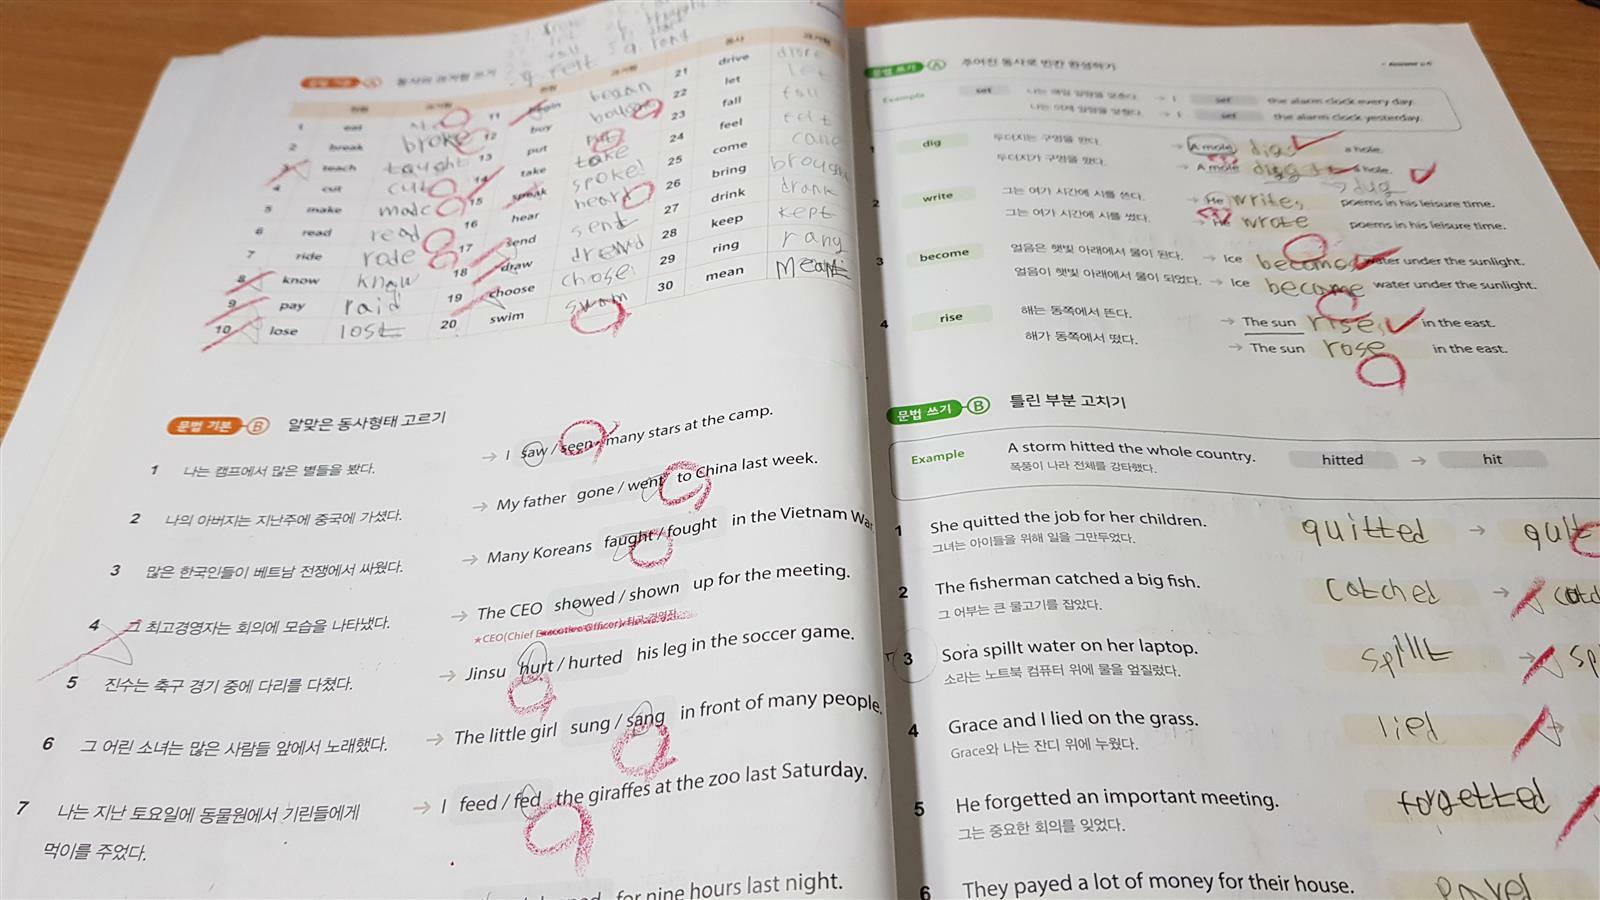 문법 기본 A 동사의 과거형 쓰기
원형 과거형
1 eat
2 break broke
3 teach taught
4 cut cut
5 make made
6 read read
7 ride rode
8 know know
9 pay raid
10 lose lost
11 begin began
12 buy
13 put put
14 take take
15 speak spoke
16 hear heard
17 send sent
18 draw drewed
19 choose chose
20 swim swam
동사 과거형
21 drive
22 let let
23 fall fall
24 feel felt
25 come came
26 bring brought
27 drink drank
28 keep kept
29 ring rang
30 mean meant
문법 기본 B 알맞은 동사형태 고르기
1 나는 캠프에서 많은 별들을 봤다. → I saw / seen many stars at the camp.
2 나의 아버지는 지난주에 중국에 가셨다. → My father gone / went to China last week.
3 많은 한국인들이 베트남 전쟁에서 싸웠다. → Many Koreans faught / fought in the Vietnam War
4 그 최고경영자는 회의에 모습을 나타냈다. → The CEO showed / shown up for the meeting.
★CEO(Chief Executive Officer): 최고 경영자
5 진수는 축구 경기 중에 다리를 다쳤다. → Jinsu hurt / hurted his leg in the soccer game.
6 그 어린 소녀는 많은 사람들 앞에서 노래했다. → The little girl sung / sang in front of many people.
7 나는 지난 토요일에 동물원에서 기린들에게 → I feed / fed the giraffes at the zoo last Saturday.
먹이를 주었다.
for nine hours last night.
문법 쓰기 A 주어진 동사로 빈칸 완성하기
Example set 나는 매일 알람을 맞춘다. → I set the alarm clock every day.
나는 어제 알람을 맞췄다. → I set the alarm clock yesterday.
1 dig 두더지는 구멍을 판다. → A mole digs a hole.
두더지가 구멍을 팠다. → A mole a hole.
dug
2 write 그는 여가 시간에 시를 쓴다. → He writes poems in his leisure time.
그는 여가 시간에 시를 썼다. → He wrote poems in his leisure time.
3 become 얼음은 햇빛 아래에서 물이 된다. → Ice becomes water under the sunlight.
얼음이 햇빛 아래에서 물이 되었다. → Ice become water under the sunlight.
4 rise 해는 동쪽에서 뜬다. → The sun rises in the east.
해가 동쪽에서 떴다. → The sun rose in the east.
문법 쓰기 B 틀린 부분 고치기
Example A storm hitted the whole country. hitted → hit
폭풍이 나라 전체를 강타했다.
1 She quitted the job for her children. quitted → quit
그녀는 아이들을 위해 일을 그만두었다.
2 The fisherman catched a big fish. catched →
그 어부는 큰 물고기를 잡았다.
3 Sora spillt water on her laptop. spillt → sp
소라는 노트북 컴퓨터 위에 물을 엎질렀다.
4 Grace and I lied on the grass. lied →
Grace와 나는 잔디 위에 누웠다.
5 He forgetted an important meeting. forgetted
그는 중요한 회의를 잊었다.
6 They payed a lot of money for their house. payed